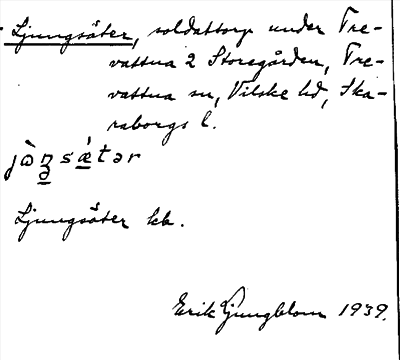 Ljungsäter, soldattorp under Tre-
vattna 2 Storegården, Tre-
vattna sn, Vilske hd, Ska-
raborgs l.
jὼn̠sǽtər
Ljungsäter kb.
Erik Ljungblom 1939.